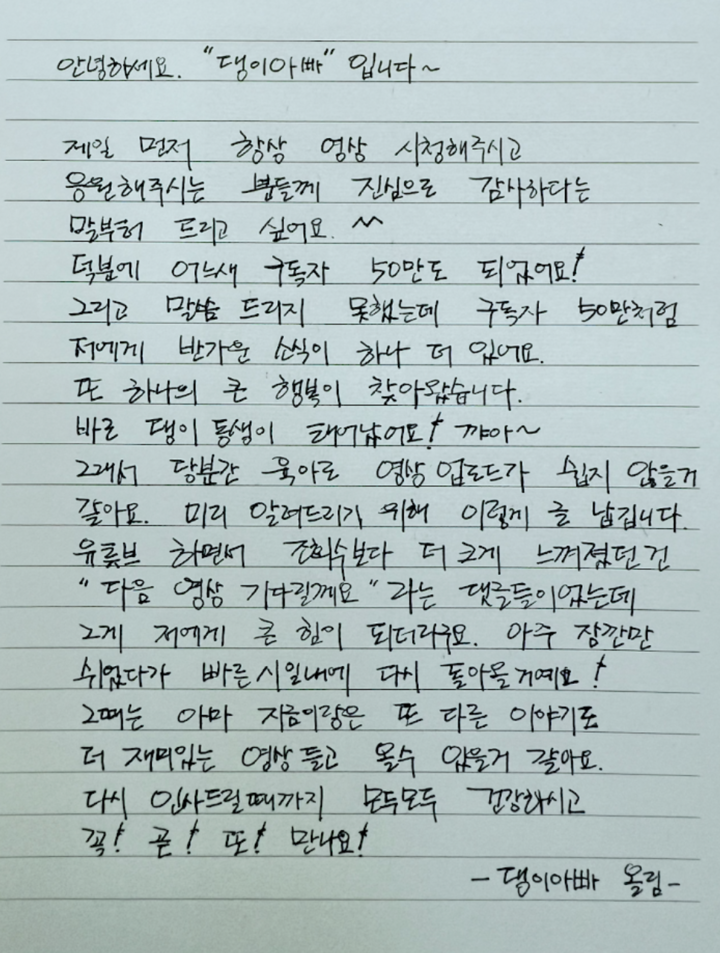 안녕하세요. "댕이아빠" 입니다~
제일 먼저 항상 영상 시청해주시고
응원해주시는 분들께 진심으로 감사하다는
말부터 드리고 싶어요. ^^
덕분에 어느새 구독자 50만도 되었어요!
그리고 말씀 드리지 못했는데 구독자 50만처럼
저에게 반가운 소식이 하나 더 있어요.
또 하나의 큰 행복이 찾아왔습니다.
바로 댕이 동생이 태어났어요! 꺄아~
그래서 당분간 육아로 영상 업로드가 쉽지 않을거
같아요. 미리 알려드리기 위해 이렇게 글 남깁니다.
유튜브 하면서 조회수보다 더 크게 느껴졌던건
"다음 영상 기다릴께요"라는 댓글들이었는데
그게 저에게 큰 힘이 되더라구요. 아주 잠깐만
쉬었다가 빠른시일내에 다시 돌아올거예요!
그때는 아마 지금이랑은 또 다른 이야기로
더 재미있는 영상 들고 올수 있을거 같아요.
다시 인사드릴때까지 모두모두 건강하시고
꼭! 곧! 또! 만나요!
- 댕이아빠 올림 -